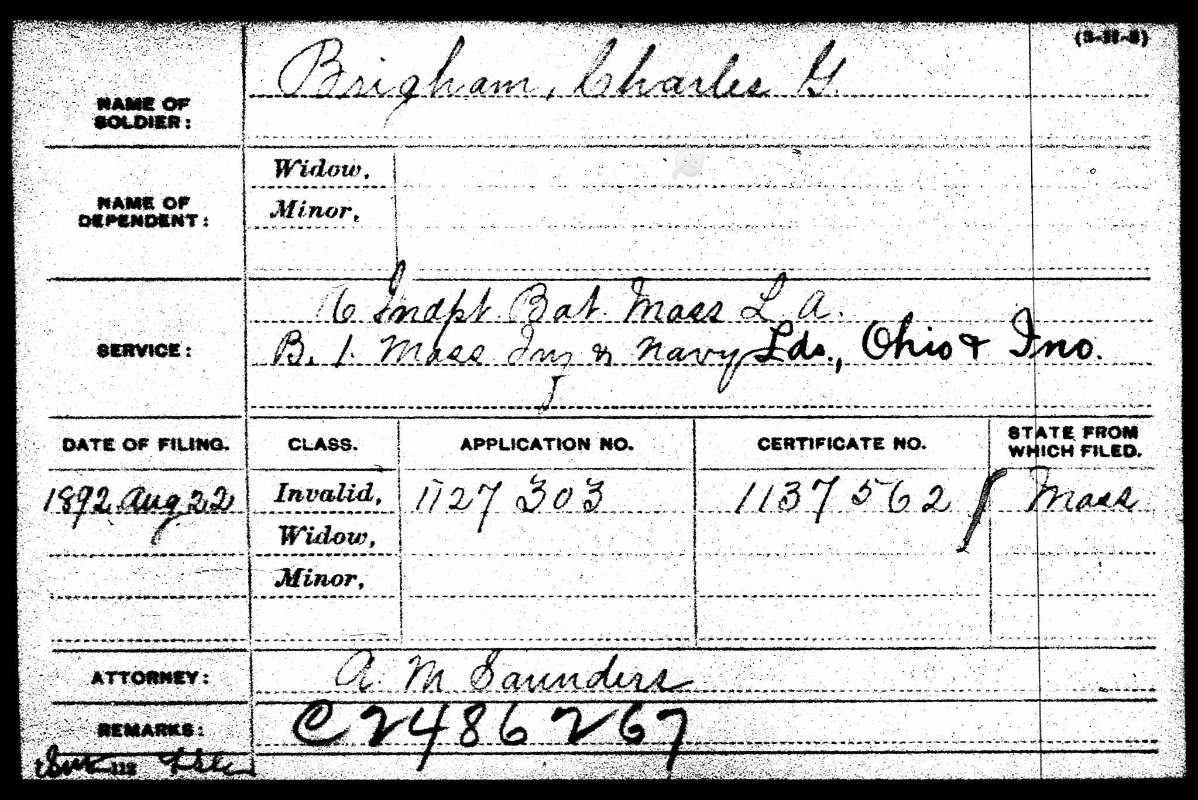 (3-II-3)
Brigham, Charles G.
NAME OF
SOLDIER:
NAME OF
DEPENDENT:
Widow,
Minor,
SERVICE:
16 Indpt. Bat. Mass L. A.
B. 1. Mass Inf & Navy Lds., Ohio & Ino.
DATE OF FILING. CLASS. APPLICATION NO. CERTIFICATE NO. STATE FROM
WHICH FILED.
1892 Aug 22 Invalid, 1127 303 1137 562 Mass
Widow,
Minor,
ATTORNEY: A. M. Saunders
REMARKS: C 2486267
112